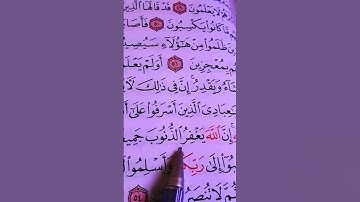 رَهُمْ لَا يَعْلَمُونَ ٤٩ قَدْ قَالَهَا الَّذِينَ
مَّا كَانُوا يَكْسِبُونَ ٥٠ فَأَصَا
ينَ ظَلَمُوا مِنْ هَٰؤُلَاءِ سَيُصِيـ
بِمُعْجِزِينَ ٥١ أَوَلَمْ يَعْلَمـ
ـاءُ وَيَقْدِرُ إِنَّ فِي ذَٰلِكَ لَآ
يَٰعِبَادِيَ الَّذِينَ أَسْرَفُوا عَلَىٰ أَ
إِنَّ اللَّهَ يَغْفِرُ الذُّنُوبَ جَمِيـ
ـبُوا إِلَىٰ رَبِّكُمْ وَأَسْلِمُوا
ـمَّ لَا تُنصَرُ ٥٤